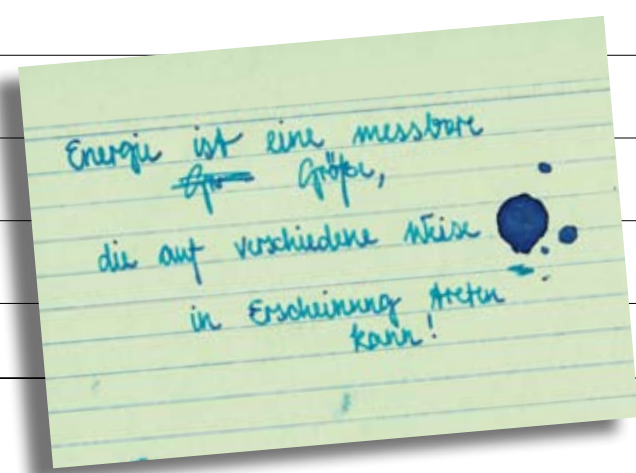 Energie ist eine messbare
Größe,
die auf verschiedene Weise
in Erscheinung treten
kann!